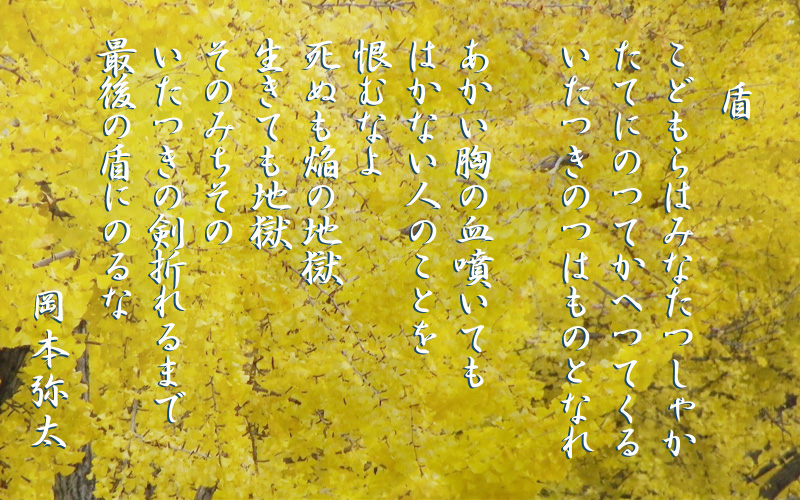 盾
こどもらはみなたつしやか
たてにのつてかへつてくる
いたつきのつはものとなれ
あかい胸の血噴いても
はかない人のことを
恨むなよ
死ぬも焔の地獄
生きても地獄
そのみちその
いたつきの剣折れるまで
最後の盾にのるな
岡本弥太